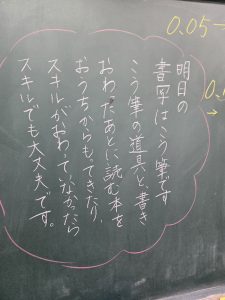 明日の
書写はこう筆です
こう筆の道具と、書き
おわったあとに読む本を
おうちからもってきたり、
スキルがおわっていなかったら
スキルでも大丈夫です。
0.05